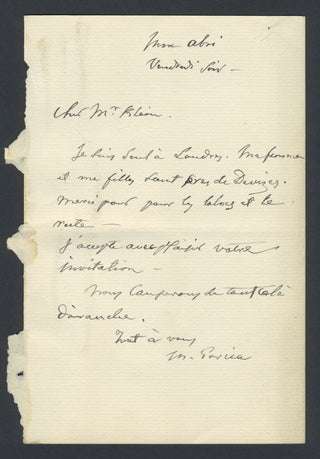 Mon abri
Vendredi soir —
Cher Mr Klein.
Je suis seul à Londres. Ma femme
et mes filles sont près de Devizes.
Merci pour les et le
reste —
J'accepte avec plaisir votre
invitation —
Nous causerons de tout cela
dimanche.
Tout à vous
M. Garcia